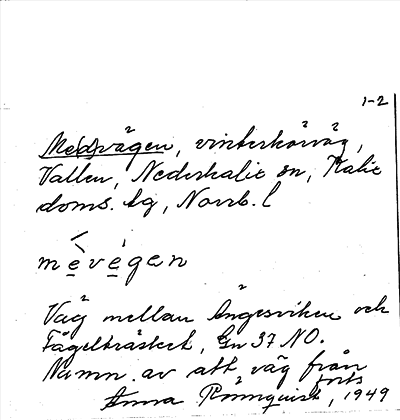 1-2
Me(d)vägen, vinterkörväg,
Vallen, Nederkalix sn, Kalix
doms. tg, Norrb. l
mèvégen
Väg mellan Ängesviken och
Fågelträsket, Gn 37 NO.
Namn. av att väg från
forts
Anna Rönnquist, 1949